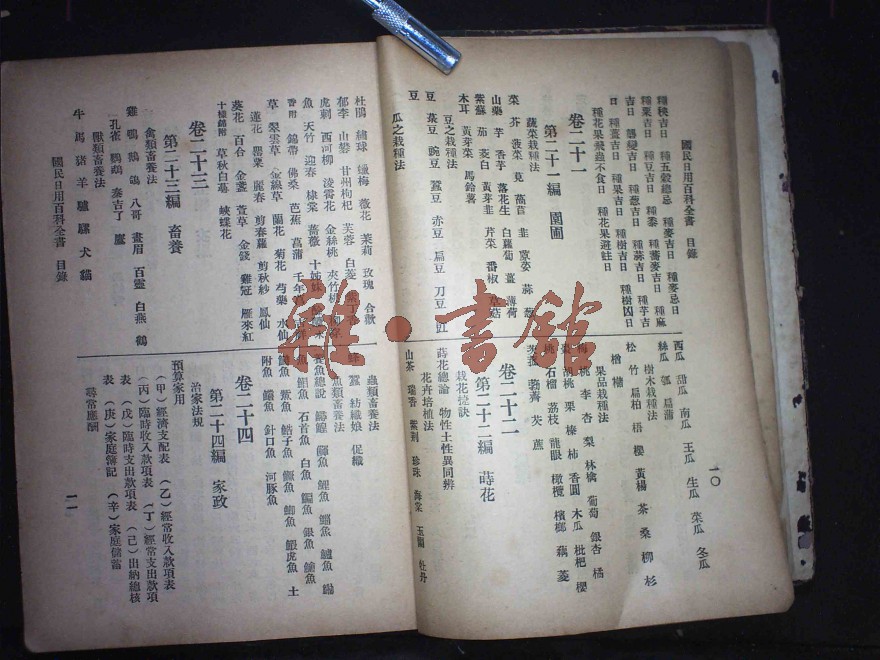 國民日用百科全書 目錄
種秧吉日 種五穀總忌 種麥吉日 種麥忌日
種粟吉日 種豆吉日 種黍 種蕎麥吉日 種麻
吉日 襲變吉日 種蔥吉日 種蒜吉日 種芋吉
日 種薑吉日 種果吉日 種樹吉日 種樹凶日
種花果飛蟲不食日 種花果避蛀日
卷二十一
第二十一編 園圃
蔬菜栽種法
菜 芥 菠菜 莧 萵苣 韭
山藥 芋 香芋 落花生 白蘿蔔 薑 薄荷
紫蘇 茄 茭白 黃芽韭 芹菜 番椒
木耳 黃芽菜 馬鈴薯
豆之栽種法
豆 葉豆 豌豆 蠶豆 赤豆 扁豆 刀豆 豇
豆
瓜之栽種法
西瓜 甜瓜 南瓜 王瓜 生瓜 菜瓜 冬瓜
絲瓜 瓠 扁蒲
樹木栽種法
松 竹 扁柏 梧 櫻 黃楊 茶 桑 柳 杉
檜 檀
果品栽種法
梅 桃 李 杏 梨 林檎 葡萄 銀杏 橘
棗 胡桃 栗 榛 柿 香圓 木瓜 枇杷 櫻
桃 石榴 荔枝 龍眼 橄欖 檳榔 藕 菱
荸薺 芡 蔗
卷二十二
第二十二編 蒔花
栽花捷訣
蒔花總論 物性土性異同辨
花卉培植法
山茶 瑞香 紫荊 珍珠 海棠 玉蘭 牡丹
一〇
杜鵑 繡球 蠟梅 薇花 茉莉 玫瑰 合歡
郁李 山礬 甘州枸杞 芙蓉 白菱
虎刺 西河柳 淩霄花 金絲桃 夾竹桃
魚 天竹 迎春 棣棠 薔薇 十姊妹
香附 錦帶 佛桑 芭蕉 菖蒲 千年
草 翠雲草 金線草 蘭花 菊花 芍藥 水仙
蓮花 罌粟 麗春 剪春蘿 剪秋紗 鳳仙
葵花 百合 金盞 萱草 金錢 雞冠 雁來紅
十樣錦附 草秋白蕚 蛺蝶花
卷二十三
第二十三編 畜養
禽類畜養法
雞 鴨 鵝 鴿 八哥 畫眉 百靈 白燕 鶴
孔雀 鸚鵡 秦吉了 鷹
獸類畜養法
牛 馬 豬 羊 驢 騾 犬 貓
國民日用百科全書 目錄
蟲類畜養法
蜂 蠶 紡織娘 促織
魚類畜養法
養魚總說 鱘鰉 鰣魚 鯉魚 鯔魚 鱸魚
魚 鯧魚 石首魚 白魚 鯿魚 銀魚 鱠魚
鱖魚 鮆魚 鯌子魚 鱖魚 鯽魚 鰕虎魚 土
附魚 鱠魚 針口魚 河豚魚
卷二十四
第二十四編 家政
治家法規
預算家用
（甲）經濟支配表 （乙）經常收入款項表
（丙）臨時收入款項表 （丁）經常支出款項
表 （戊）臨時支出款項表 （己）出納總核
表 （庚）家庭簿記 （辛）家庭儲蓄
尋常應酬
一一
雜·書館